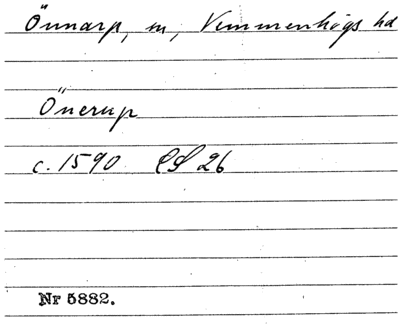 Önnarp, sn, Vemmenhögs hd
Önerup
c. 1590 LS 26
Nr 5882.